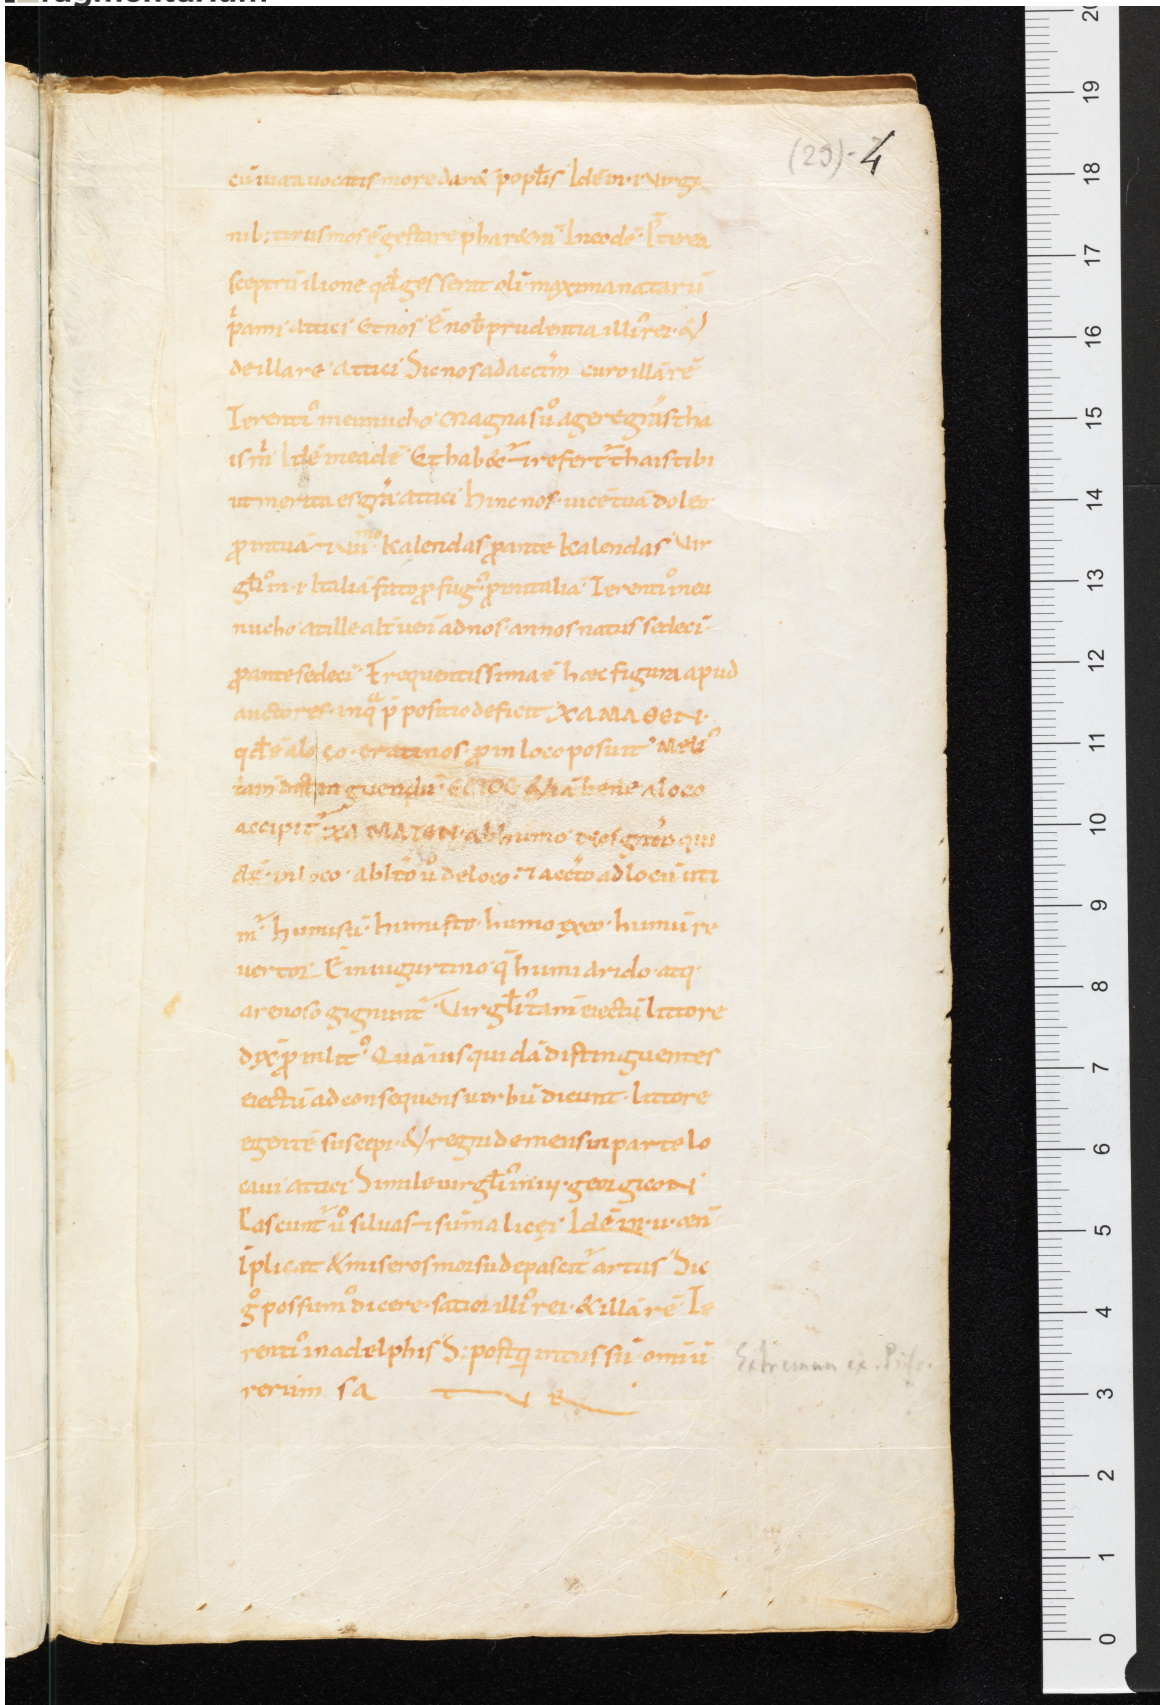 (29)-4
cū iura uocatis more dar& popłis Idē in·i· Uirgi
nib; tirus mos ē gestare phar&rā Ineodē P̄terea
sceptrū ilione qđ gesserat oli maxima nataru
p̄ami attici Et nos ē nob prudentia illi rei &
de illa re attici Sic nos ad acctm̄ curo illā rē
Terenti in eunucho magnas ū agere grās tha
is m Idē ineadē Et hab&r refert thais tibi
ut merita es grā attici hinc nos uicē tuā doleo
kalendas p ante kalendas Uir
Italiā fato p fug p in italiā Terenti in eu
nucho at ille alt uen ad nos annos natus sedeci
p ante sedeci Frequentissima ē hæc figura apud
auctores in q p̄ positio deficit XAMAΘEN
qđ ē a loco erat nos p in loco posuit Meli
tam distinguendū & iā bene a loco
accipit XAMATEN ab humo
in loco abltō ū de loco acctō ad locū uti
humisti humisto humo exeo humū re
uertor Ē iniugurtino q humi arido atq
arenoso gignunt Uirgłi tam eiectū littore
dix p in lit Quāuis quidā distinguentes
eiectū ad consequens uerbū dicunt littore
egentē suscepi & regni demens in parte lo
caui attici Simile uirgłi in iii georgicoN
Pascunt ū siluas summa licęi Idē in·u·æn
Īplicat & miseros morsu depascit artus Sic
g possum dicere sator illi rei & illā rē Te
renti in adelphis S: postq intus sū omiū
rerum sa t u r
Extremum ex. Prisc.